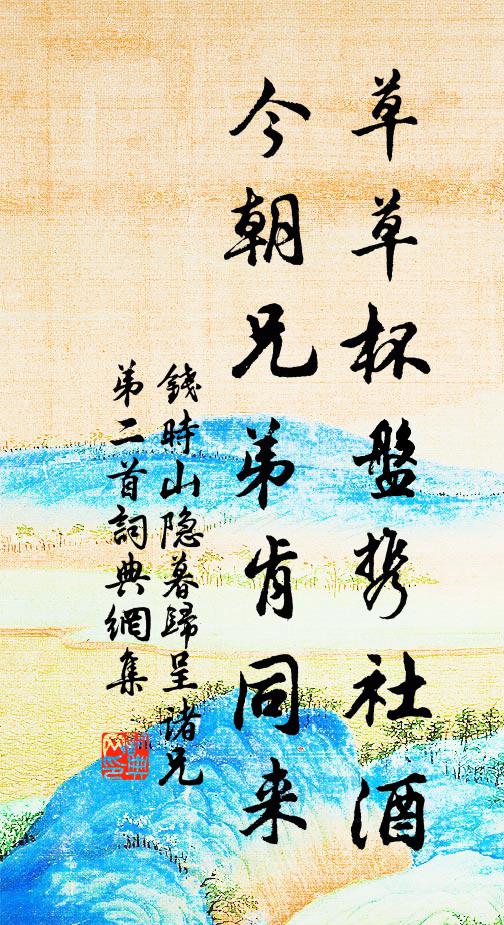 草草杯盤携社酒
今朝兄弟肯同来
錢時山隐暮歸呈诸兄
第二首詞典網集